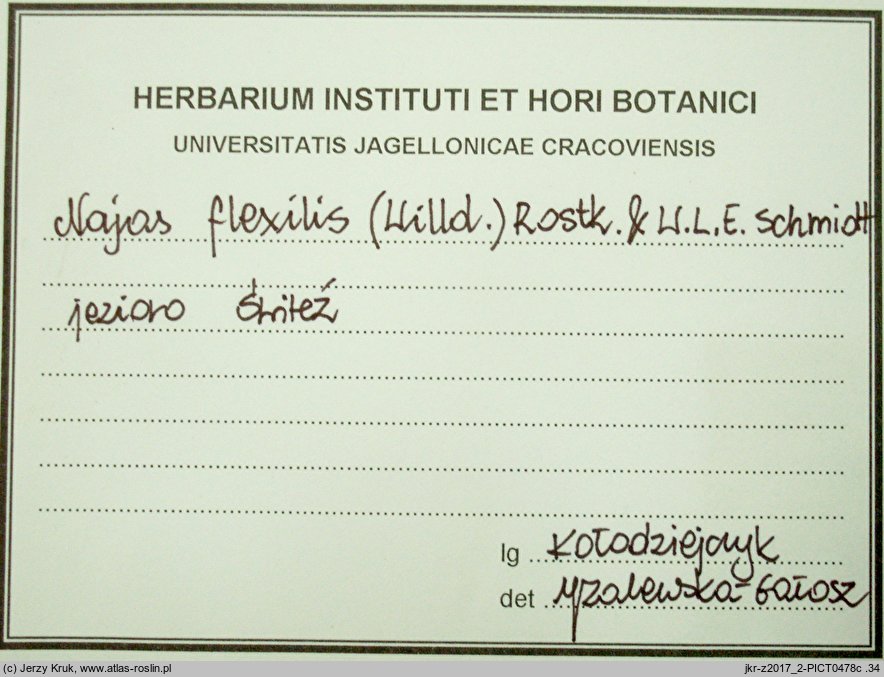 HERBARIUM INSTITUTI ET HORI BOTANICI
UNIVERSITATIS JAGELLONICAE CRACOVIENSIS
Najas flexilis (Willd.) Rostk. & W.L.E. Schmidt
jezioro Świteź
lg Kołodziejczyk
det Zalewska-Gałosz
(c) Jerzy Kruk, www.atlas-roslin.pl
jkr-z2017_2-PICT0478c .34